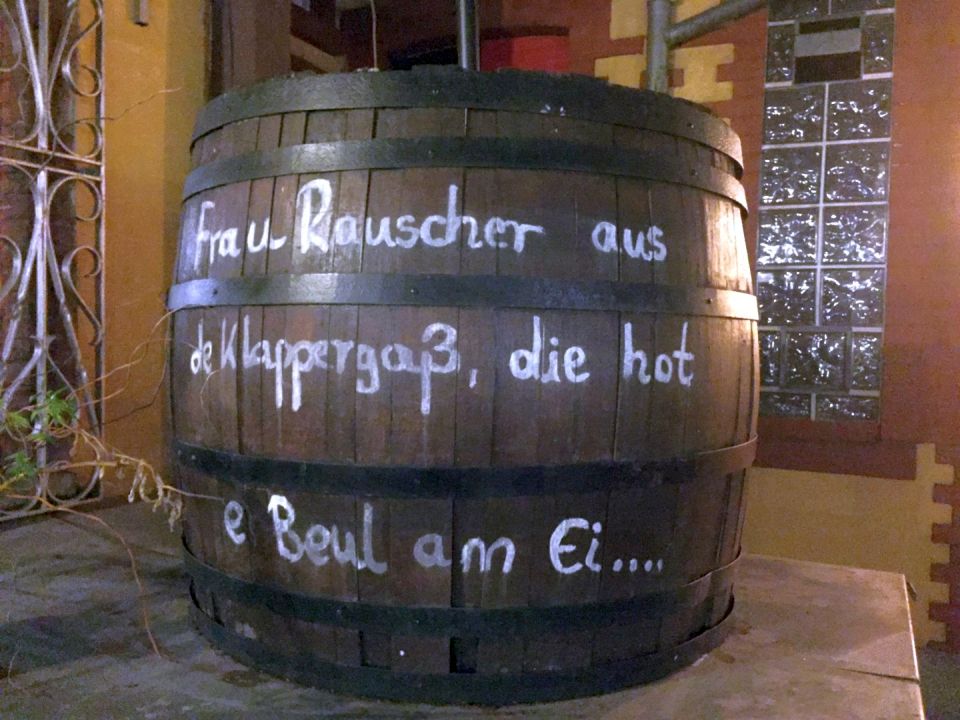 Frau Rauscher aus
de Klappergaß, die hot
e Beul am Ei....